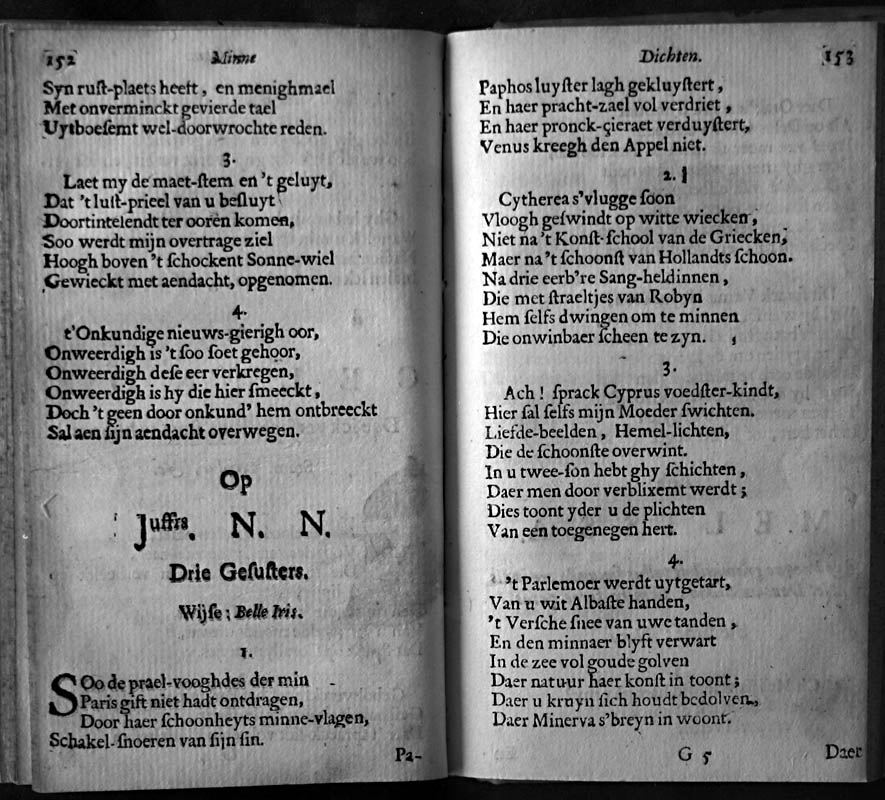 152 Minne
Syn ruſt-plaets heeft, en menighmael
Met onverminckt gevierde tael
Uytboeſemt wel-doorwrochte reden.
3.
Laet my de maet-ſtem en 't geluyt,
Dat 't luſt-prieel van u beſluyt
Doortintelendt ter ooren komen,
Soo werdt mijn overtrage ziel
Hoogh boven 't ſchockent Sonne-wiel
Gewieckt met aendacht, opgenomen.
4.
t'Onkundige nieuws-gierigh oor,
Onweerdigh is 't ſoo ſoet gehoor,
Onweerdigh deſe eer verkregen,
Onweerdigh is hy die hier ſmeeckt,
Doch 't geen door onkund' hem ontbreeckt
Sal aen ſijn aendacht overwegen.
Op
Juffrs. N. N.
Drie Geſuſters.
Wijſe; Belle Iris.
1.
SOo de prael-vooghdes der min
Paris gift niet hadt ontdragen,
Door haer ſchoonheyts minne-vlagen,
Schakel-ſnoeren van ſijn ſin.
Pa-
Dichten. 153
Paphos luyſter lagh gekluyſtert,
En haer pracht-zael vol verdriet,
En haer pronck-çieraet verduyſtert,
Venus kreegh den Appel niet.
2.
Cytherea s'vlugge ſoon
Vloogh geſwindt op witte wiecken,
Niet na 't Konſt-ſchool van de Griecken,
Maer na 't ſchoonſt van Hollandts ſchoon.
Na drie eerb're Sang-heldinnen,
Die met ſtraeltjes van Robyn
Hem ſelfs dwingen om te minnen
Die onwinbaer ſcheen te zyn.
3.
Ach! ſprack Cyprus voedſter-kindt,
Hier ſal ſelfs mijn Moeder ſwichten.
Liefde-beelden, Hemel-lichten,
Die de ſchoonſte overwint.
In u twee-ſon hebt ghy ſchichten,
Daer men door verblixemt werdt;
Dies toont yder u de plichten
Van een toegenegen hert.
4.
't Parlemoer werdt uytgetart,
Van u wit Albaſte handen,
't Verſche ſnee van uwe tanden,
En den minnaer blyft verwart
In de zee vol goude golven
Daer natuur haer konſt in toont;
Daer u kruyn ſich houdt bedolven,
Daer Minerva s'breyn in woont.
G 5 Daer